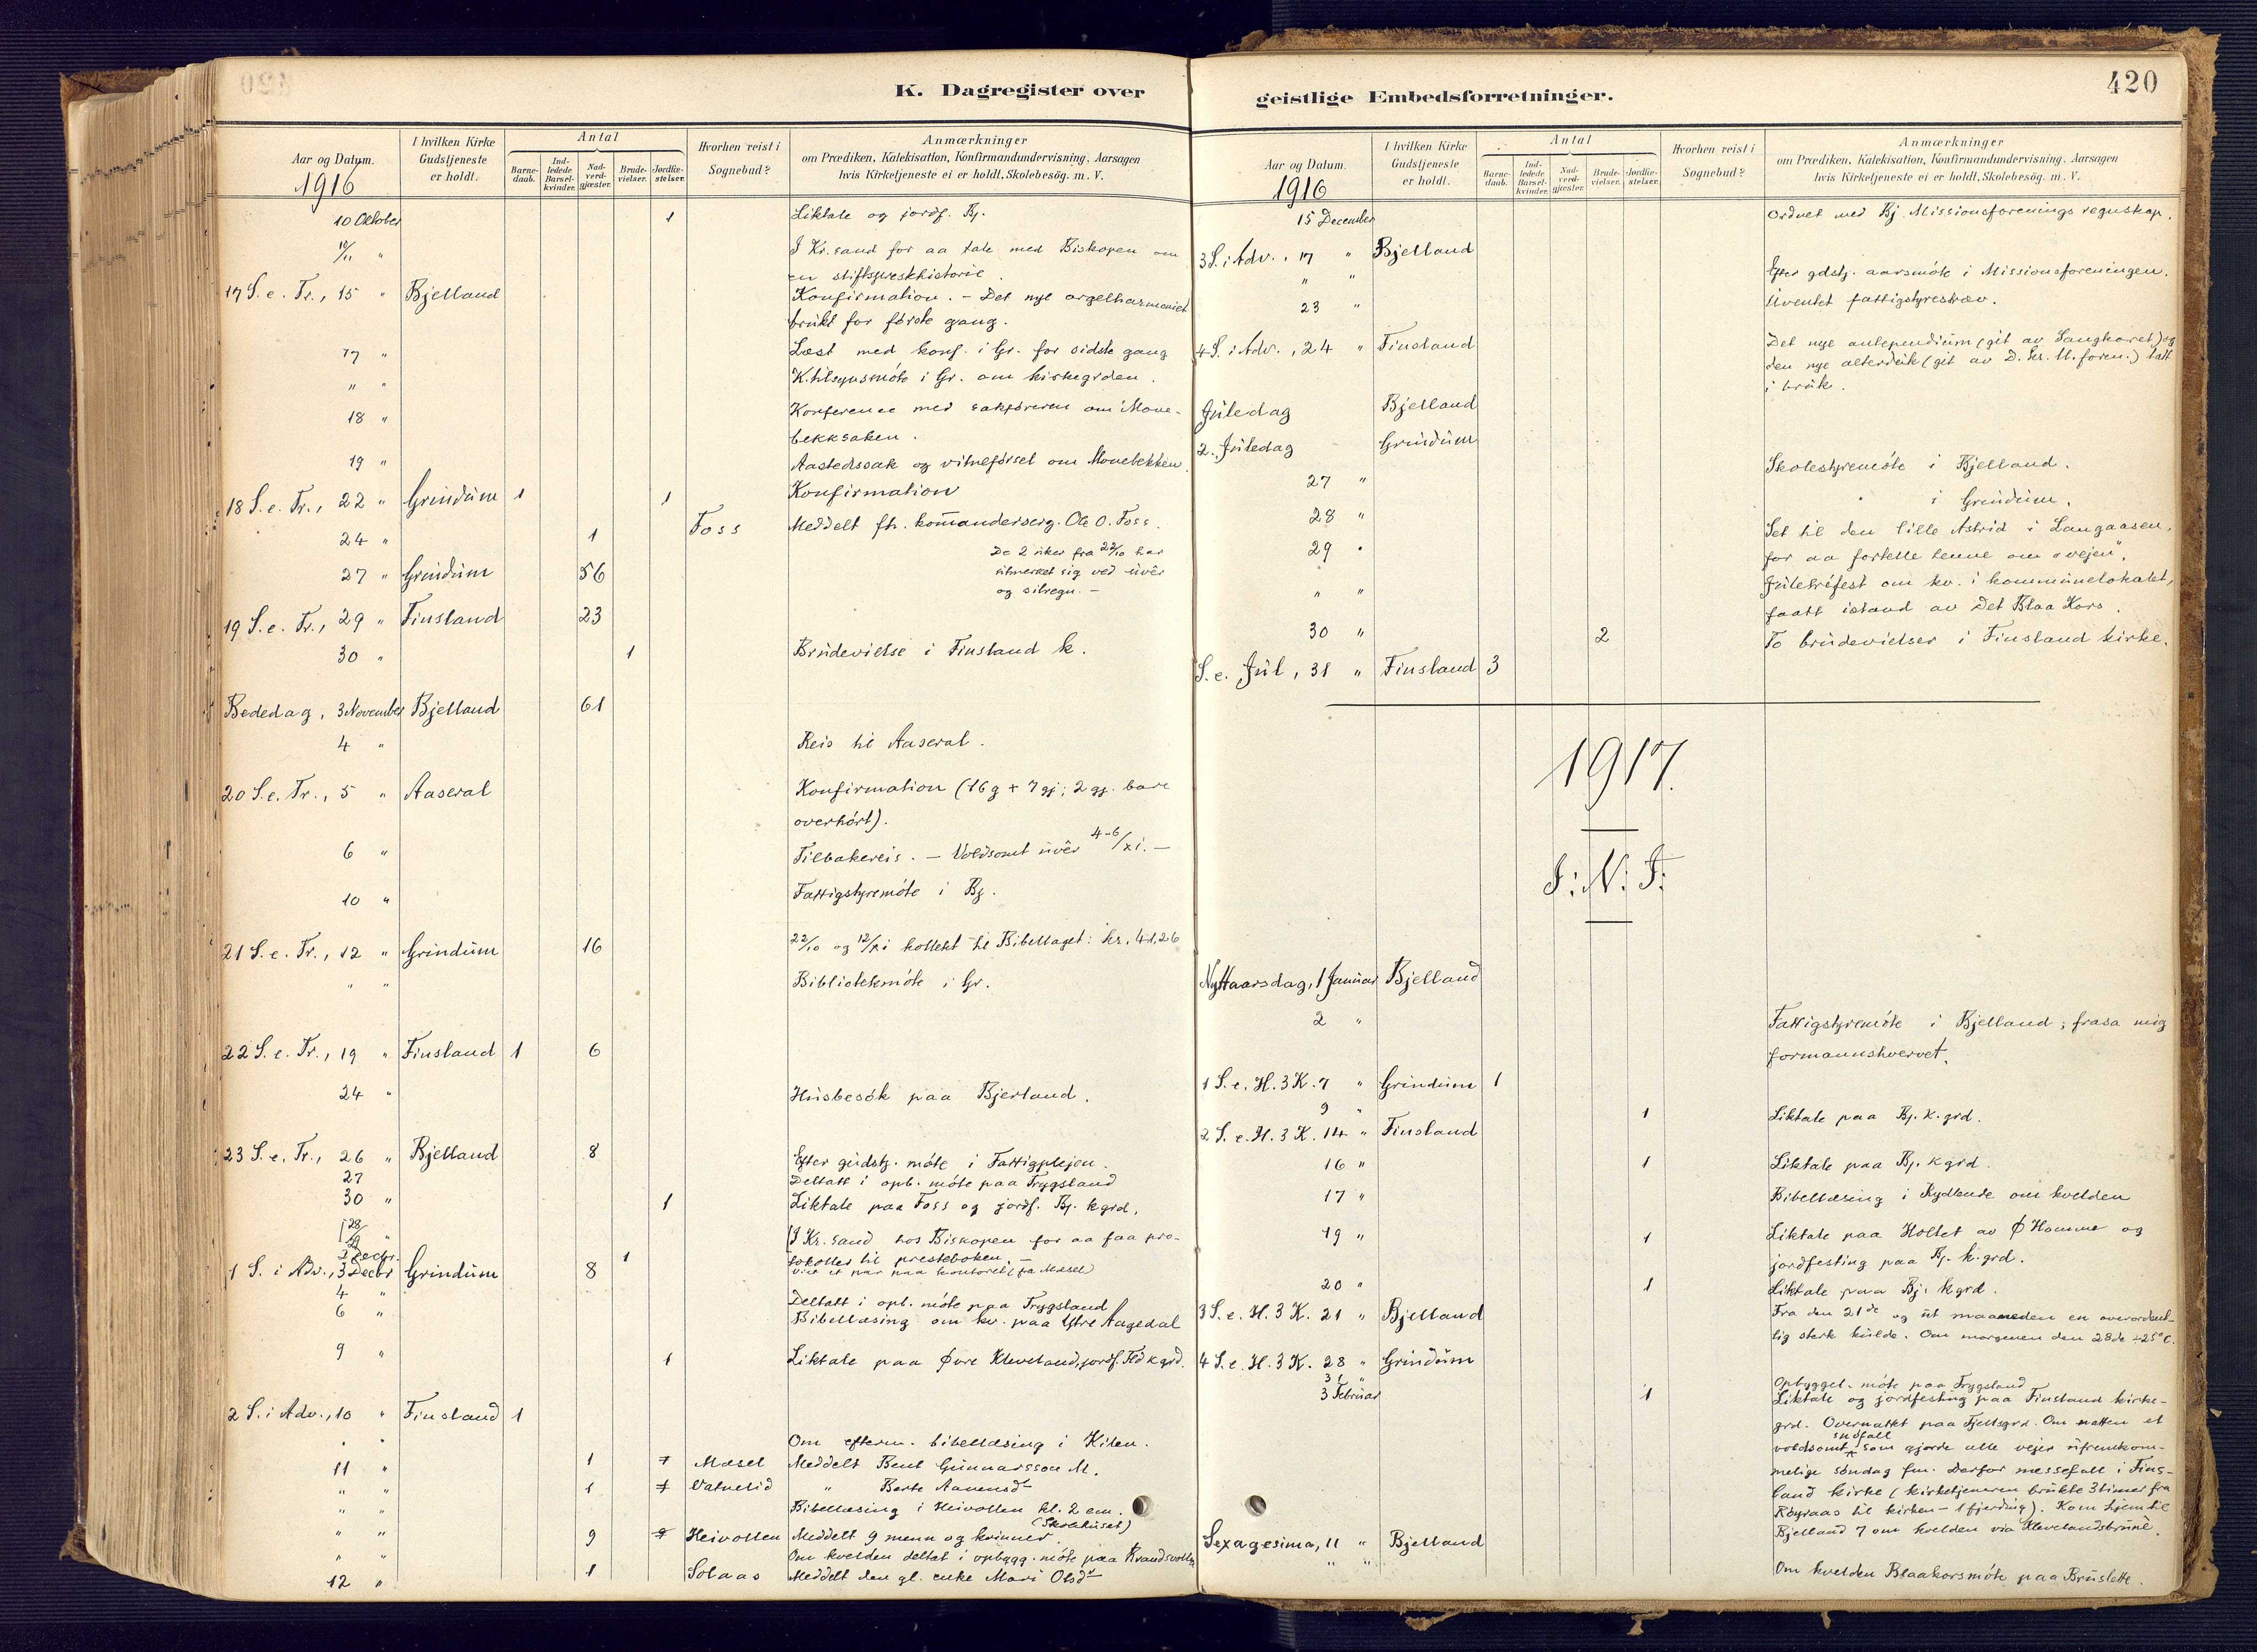 K. Dagregister over
Aar og Datum.
1916
I hvilken Kirke Gudstjeneste er holdt.
Antal
Barnedaab.
Indledede Barselkvinder.
Nadverdgjæster.
Brudevielser.
Jordfæstelser.
Hvorhen reist i Sognebud?
Anmærkninger
om Prædiken, Katekisation, Konfirmandundervisning, Aarsagen
hvis Kirketjeneste ei er holdt, Skolebesög. m. V.
10 Oktober 1 Liktale og jordf. Bj.
10/11 " I Kr.sand for aa tale med Biskopen om
en stiftspreskhistorie.
17 S. e. Tr., 15 " Bjelland Konfirmation. – Det nye orgelharmoniet
brukt for förste gang.
17 " Læst med konf. i Gr. for sidste gang
" " K.tilsynsmöte i Gr. om kirkegrden.
18 " Konference med sakföreren om Mone-
bekksaken.
19 " Aastedssak og vitneförsel om Monebekken.
18 S. e. Tr., 22 " Grindum 1 1 Konfirmation
24 " 1 Foss Meddelt fh. komanderserg. Ole O. Foss.
De 2 uker fra 22/10 har
27 " Grindum 56 utmerket sig ved uvêr
og silregn. –
19 S. e. Tr., 29 " Finsland 23
30 " 1 Brudevielse i Finsland k.
Bededag, 3 November Bjelland 61
4 " Reis til Aaseral.
20 S. e. Tr., 5 " Aaseral Konfirmation (16 g + 7 gj; 2 gj. bare
overhört).
6 " Tilbakereis. – Voldsomt uvêr 4-6/xi. –
10 " Fattigstyremöte i Bj.
21 S. e. Tr., 12 " Grindum 16 22/10 og 12/xi kollekt til Bibellaget: kr. 41,26
" " Biblioteksmöte i Gr.
22 S. e. Tr., 19 " Finsland 1 6
24 " Husbesök paa Bjerland.
23 S. e. Tr., 26 " Bjelland 8 Efter gudstj. möte i Fattigplejen.
27 Deltatt i opb. möte paa Trygsland
30 " 1 Liktale paa Foss og jordf. Bj. kgrd.
28/29 " I Kr.sand hos Biskopen for aa faa pro-
2 Decbr. 1 tokoller til presteboken. –
1 S. i Adv., 3 Decbr Grindum 8 viet et par paa kontoret (fra Mosel)
4 " Deltatt i opb. möte paa Trygsland
6 " Bibellæsing om kv. paa Ytre Aagedal
9 " 1 Liktale paa Øvre Kleveland, jordf. Fld kgrd.
2 S. i Adv., 10 " Finsland 1
" " Om efterm. bibellæsing i Kilen.
11 " 1 Mæsel Meddelt Bent Gunnarsson M.
" " 1 Vatnelid " Berte Aanensdr
" " Bibellæsing i Heivollen kl. 2 em.
(Skolehuset)
" " 9 Heivollen Meddelt 9 menn og kvinner.
" " Om kvelden deltat i opbygg. möte paa Kvandsvollen
12 " 1 Solaas Meddelt den gl. enke Mari Olsdr
420
geistlige Embedsforretninger.
Aar og Datum.
1916
I hvilken Kirke Gudstjeneste er holdt.
Antal
Barnedaab.
Indledede Barselkvinder.
Nadverdgjæster.
Brudevielser.
Jordfæstelser.
Hvorhen reist i Sognebud?
Anmærkninger
om Prædiken, Katekisation, Konfirmandundervisning, Aarsagen
hvis Kirketjeneste ei er holdt, Skolebesög. m. V.
15 December Ordnet med Bj. Missionsforenings regnskap.
3 S. i Adv., 17 " Bjelland
" " Efter gdstj. aarsmöte i Missionsforeningen.
23 " Uventet fattigstyrestræv.
4 S. i Adv., 24 " Finsland Det nye antependium (git av Sangkoret) og
den nye alterduk (git av D. kr. U. foren.) tatt
i bruk.
Juledag Bjelland
2. Juledag Grindum
27 " Skolestyremöte i Bjelland.
28 " " i Grindum.
29 " Set til den lille Astrid i Langaasen,
for aa fortelle henne om "vejen".
" " Juletréfest om kv. i kommunelokalet,
faatt istand av Det Blaa Kors.
30 " 2 To brudevielser i Finsland kirke.
S. e. Jul, 31 " Finsland 3
1917.
I: N: J:
Nyttaarsdag, 1 Januar Bjelland
2 " Fattigstyremöte i Bjelland; frasa mig
formannshvervet.
1 S. e. H. 3 K. 7 " Grindum 1
9 " 1 Liktale paa Bj. k.grd.
2 S. e. H. 3 K. 14 " Finsland
16 " 1 Liktale paa Bj. kgrd.
17 " Bibellæsing i Rydlende om kvelden
19 " 1 Liktale paa Holtet av Ø Homme og
jordfesting paa Bj. k.grd.
20 " 1 Liktale paa Bj. kgrd.
3 S. e. H. 3 K. 21 " Bjelland Fra den 21de og ut maaneden en overordent-
lig sterk kulde. Om morgenen den 28de ÷25° C.
4 S. e. H. 3 K. 28 " Grindum
31 " Opbyggel. möte paa Trygsland
3 Februar 1 Liktale og jordfesting paa Finsland kirke-
grd. Overnattet paa Fjellsgrd. Om natten et
voldsomt snöfall som gjorde alle vejer ufremkom-
melige söndag fm. Derfor messefall i Fins-
land kirke (kirketjeneren brukte 3 timer fra
Röyraas til kirken – 1 fjerding). Kom hjem til
Bjelland 7 om kvelden via Klevelandsbrune.
Sexagesima, 11 " Bjelland
" " Om kvelden Blaakorsmöte paa Bruslette.